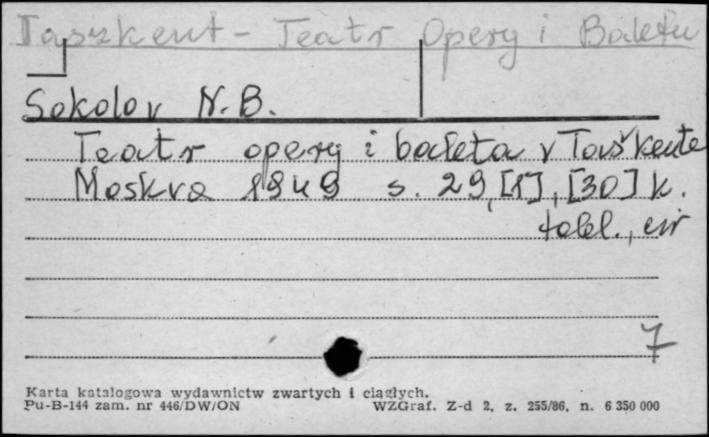 Taszkent - Teatr Opery i Baletu
Sokolov N.B.
Teatr opery i baleta v Taškente
Moskva 1949 s. 29, [1], [30] k.
tabl., err
7
Karta katalogowa wydawnictw zwartych i ciągłych.
Pu-B-144 zam. nr 446/DW/ON WZGraf. Z-d 2, z. 255/86, n. 6 350 000